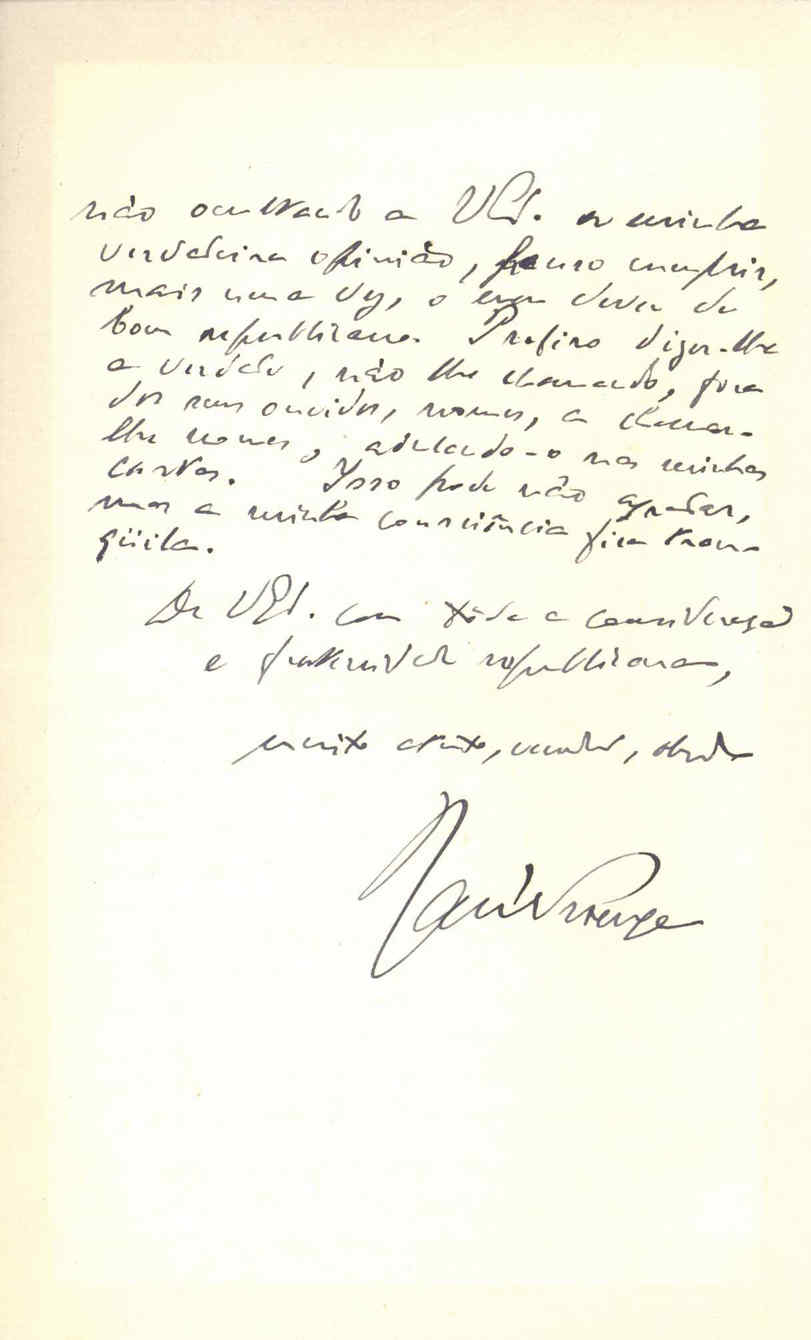 não ocultando a V. Ex.ª a minha
verdadeira opinião, penso cumprir,
mais uma vez, o meu dever de
bom republicano. Prefiro dizer-lhe
a verdade, não lhe chamando, fora
dos seus ouvidos, nomes, a chamar-
lhe nomes, adulando-o nas minhas
cartas. Isso pode não agradar,
mas a minha consciência fica tran-
qüila.
De V. Ex.ª com tôda a consideração
e fraternidade republicana,
muito atento, venerador, obrigado
Raúl Proença